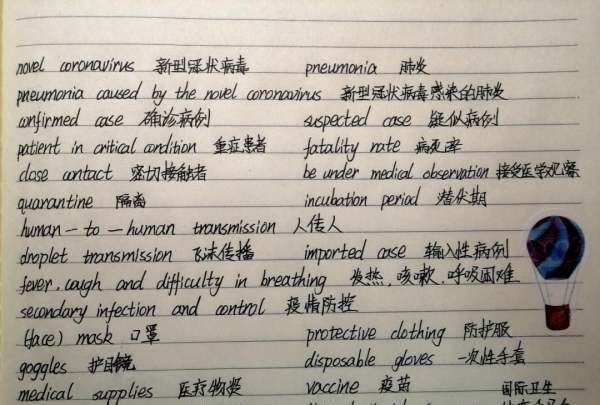 novel coronavirus 新型冠状病毒 pneumonia 肺炎
pneumonia caused by the novel coronavirus 新型冠状病毒感染的肺炎
confirmed case 确诊病例 suspected case 疑似病例
patient in critical condition 重症患者 fatality rate 病死率
close contact 密切接触者 be under medical observation 接受医学观察
quarantine 隔离 incubation period 潜伏期
human-to-human transmission 人传人
droplet transmission 飞沫传播 imported case 输入性病例
fever, cough and difficulty in breathing 发热,咳嗽,呼吸困难
secondary infection and control 疫情防控
(face) mask 口罩 protective clothing 防护服
goggles 护目镜 disposable gloves 一次性手套
medical supplies 医疗物资 vaccine 疫苗 国际卫生